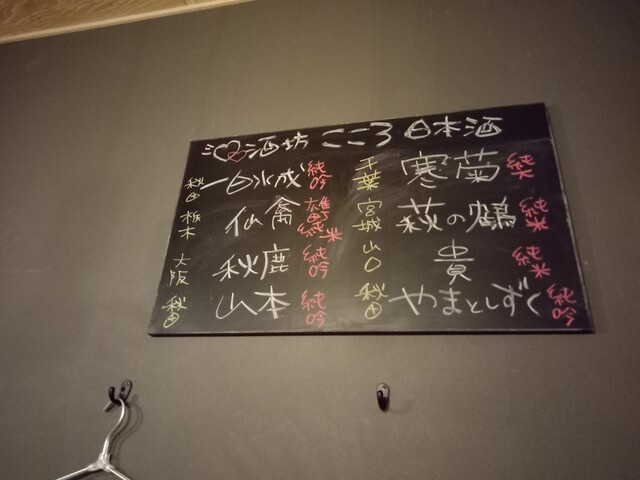 酒坊 こころ 日本酒
秋田 一白水成 純吟
栃木 仙禽 雄町 純米
大阪 秋鹿 純吟
秋田 山本 純吟
千葉 寒菊 純米
宮城 萩の鶴 純米
山口 貴 純米
秋田 やまとしずく 純吟